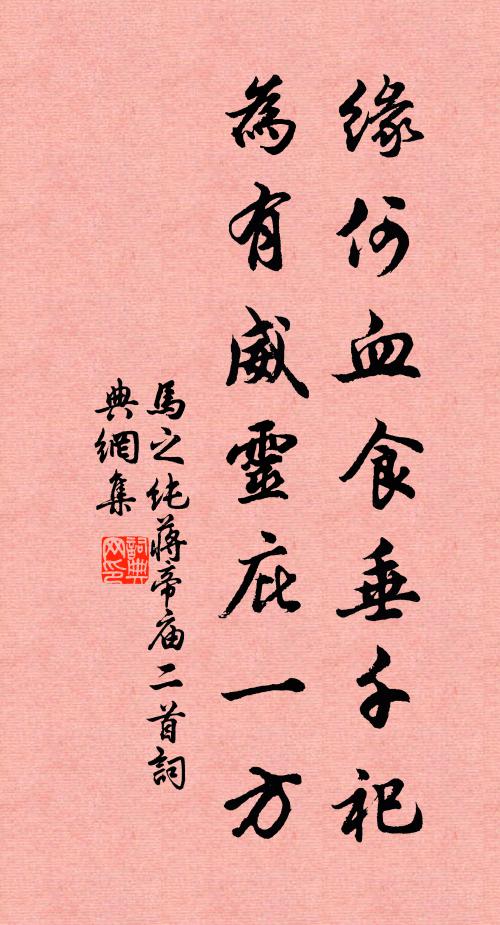 緣何血食垂千祀
為有威靈庇一方
馬之純蔣帝廟二首詞
典網集
詞典
网印